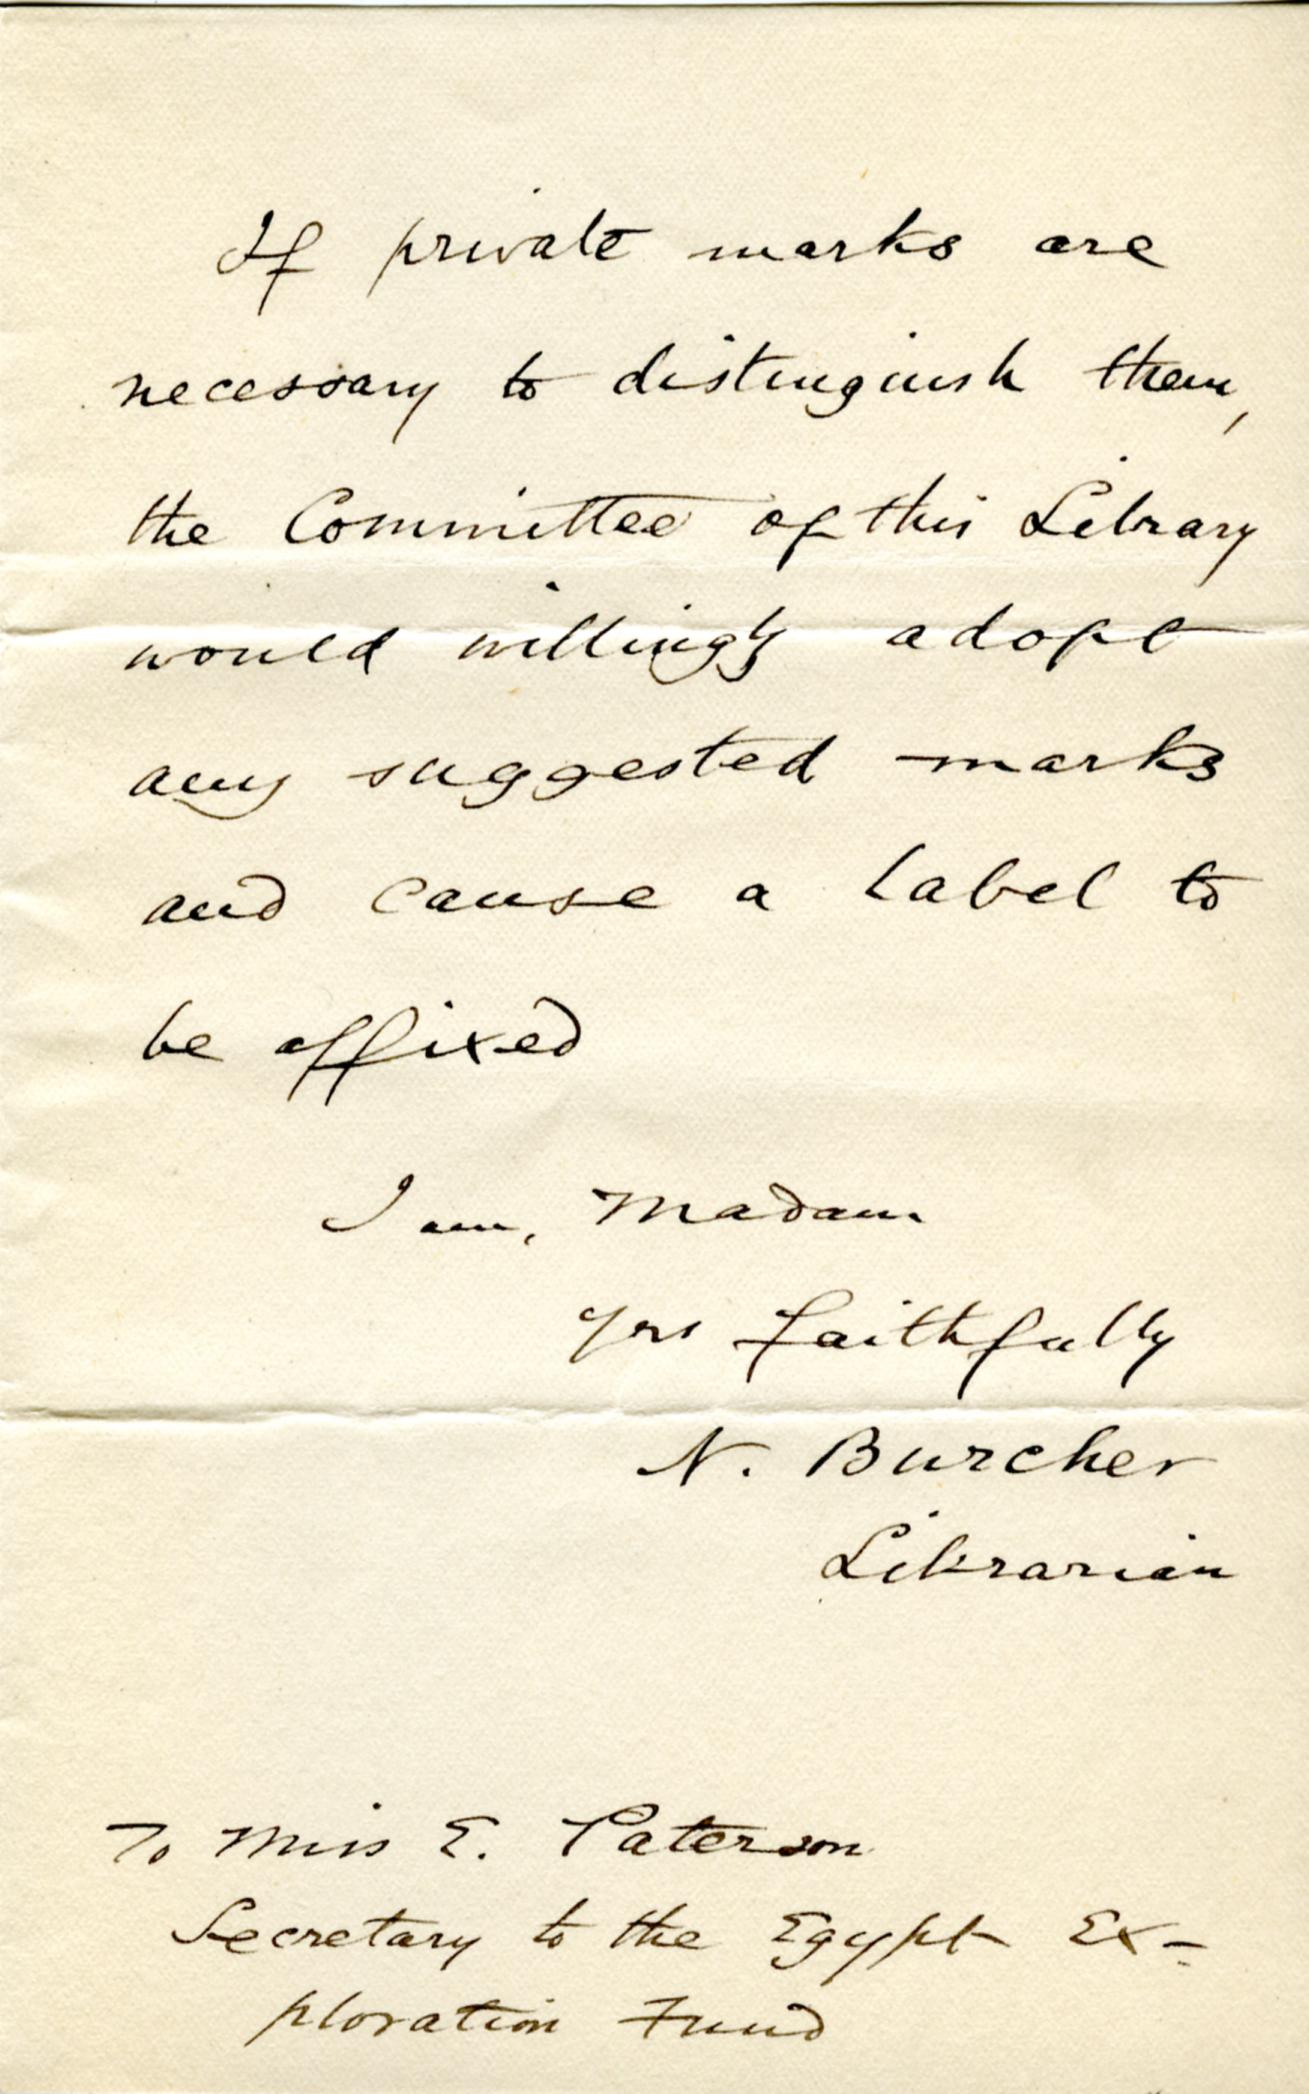 If private marks are
necessary to distinguish them,
the Committee of this Library
would willingly adopt
any suggested marks
and cause a label to
be affixed
I am, Madam
yrs faithfully
N. Burcher
Librarian
To Miss E. Paterson
Secretary to the Egypt Ex-
ploration Fund